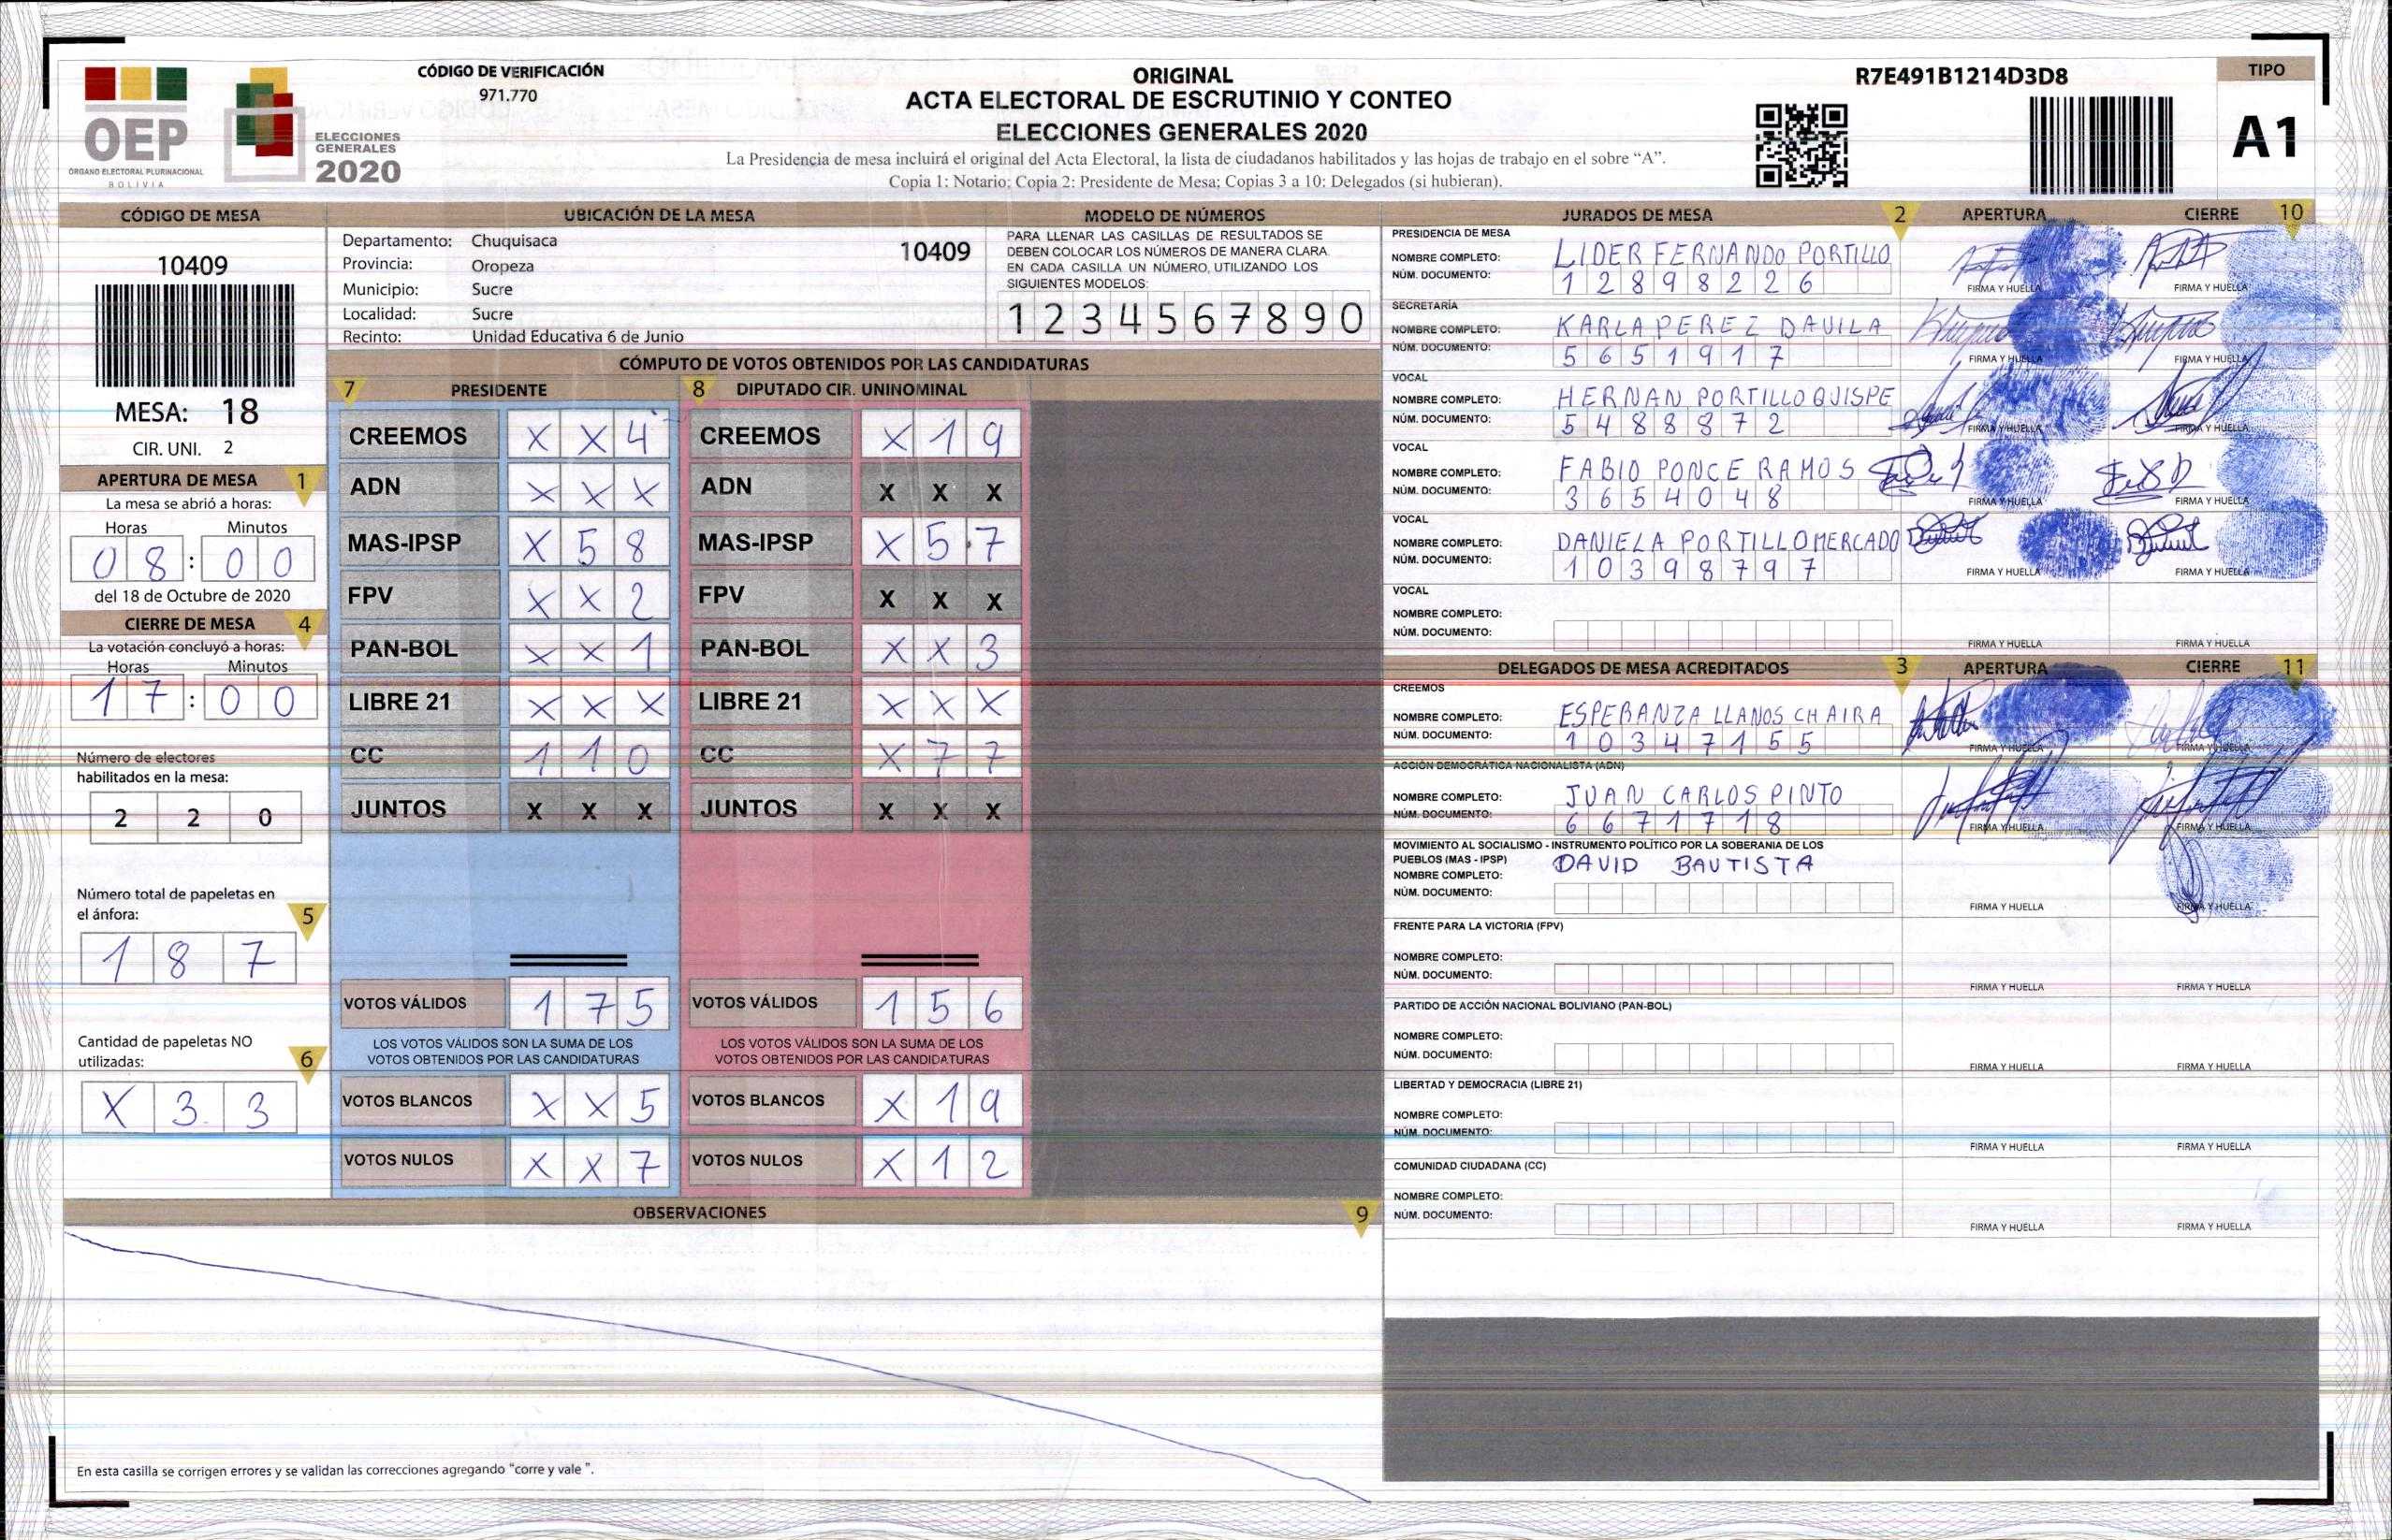 OEP
ÓRGANO ELECTORAL PLURINACIONAL
BOLIVIA
ELECCIONES
GENERALES
2020
CÓDIGO DE VERIFICACIÓN
971.770
ORIGINAL
ACTA ELECTORAL DE ESCRUTINIO Y CONTEO
ELECCIONES GENERALES 2020
La Presidencia de mesa incluirá el original del Acta Electoral, la lista de ciudadanos habilitados y las hojas de trabajo en el sobre “A”.
Copia 1: Notario; Copia 2: Presidente de Mesa; Copias 3 a 10: Delegados (si hubieran).
R7E491B1214D3D8
TIPO
A1
CÓDIGO DE MESA
10409
MESA: 18
CIR. UNI. 2
APERTURA DE MESA 1
La mesa se abrió a horas:
Horas Minutos
08:00
del 18 de Octubre de 2020
CIERRE DE MESA 4
La votación concluyó a horas:
Horas Minutos
17:00
Número de electores
habilitados en la mesa:
2 2 0
Número total de papeletas en
el ánfora: 5
1 8 7
Cantidad de papeletas NO
utilizadas: 6
X 3 3
UBICACIÓN DE LA MESA
Departamento: Chuquisaca 10409
Provincia: Oropeza
Municipio: Sucre
Localidad: Sucre
Recinto: Unidad Educativa 6 de Junio
MODELO DE NÚMEROS
PARA LLENAR LAS CASILLAS DE RESULTADOS SE
DEBEN COLOCAR LOS NÚMEROS DE MANERA CLARA.
EN CADA CASILLA UN NÚMERO, UTILIZANDO LOS
SIGUIENTES MODELOS:
1 2 3 4 5 6 7 8 9 0
CÓMPUTO DE VOTOS OBTENIDOS POR LAS CANDIDATURAS
7 PRESIDENTE 8 DIPUTADO CIR. UNINOMINAL
CREEMOS X X 4 CREEMOS X 1 9
ADN X X X ADN X X X
MAS-IPSP X 5 8 MAS-IPSP X 5 7
FPV X X 2 FPV X X X
PAN-BOL X X 1 PAN-BOL X X 3
LIBRE 21 X X X LIBRE 21 X X X
CC 1 1 0 CC X 7 7
JUNTOS X X X JUNTOS X X X
VOTOS VÁLIDOS 1 7 5 VOTOS VÁLIDOS 1 5 6
LOS VOTOS VÁLIDOS SON LA SUMA DE LOS LOS VOTOS VÁLIDOS SON LA SUMA DE LOS
VOTOS OBTENIDOS POR LAS CANDIDATURAS VOTOS OBTENIDOS POR LAS CANDIDATURAS
VOTOS BLANCOS X X 5 VOTOS BLANCOS X 1 9
VOTOS NULOS X X 7 VOTOS NULOS X 1 2
OBSERVACIONES 9
En esta casilla se corrigen errores y se validan las correcciones agregando “corre y vale ”.
JURADOS DE MESA 2 APERTURA CIERRE 10
PRESIDENCIA DE MESA
NOMBRE COMPLETO: LIDER FERNANDO PORTILLO
NÚM. DOCUMENTO: 12898226 FIRMA Y HUELLA FIRMA Y HUELLA
SECRETARÍA
NOMBRE COMPLETO: KARLA PEREZ DAVILA
NÚM. DOCUMENTO: 5651917 FIRMA Y HUELLA FIRMA Y HUELLA
VOCAL
NOMBRE COMPLETO: HERNAN PORTILLO QUISPE
NÚM. DOCUMENTO: 5488872 FIRMA Y HUELLA FIRMA Y HUELLA
VOCAL
NOMBRE COMPLETO: FABIO PONCE RAMOS
NÚM. DOCUMENTO: 3654048 FIRMA Y HUELLA FIRMA Y HUELLA
VOCAL
NOMBRE COMPLETO: DANIELA PORTILLO MERCADO
NÚM. DOCUMENTO: 10398797 FIRMA Y HUELLA FIRMA Y HUELLA
VOCAL
NOMBRE COMPLETO:
NÚM. DOCUMENTO: FIRMA Y HUELLA FIRMA Y HUELLA
DELEGADOS DE MESA ACREDITADOS 3 APERTURA CIERRE 11
CREEMOS
NOMBRE COMPLETO: ESPERANZA LLANOS CHAIRA
NÚM. DOCUMENTO: 10347155 FIRMA Y HUELLA FIRMA Y HUELLA
ACCIÓN DEMOCRÁTICA NACIONALISTA (ADN)
NOMBRE COMPLETO: JUAN CARLOS PINTO
NÚM. DOCUMENTO: 6671718 FIRMA Y HUELLA FIRMA Y HUELLA
MOVIMIENTO AL SOCIALISMO - INSTRUMENTO POLÍTICO POR LA SOBERANIA DE LOS
PUEBLOS (MAS - IPSP) DAVID BAUTISTA
NOMBRE COMPLETO:
NÚM. DOCUMENTO: FIRMA Y HUELLA FIRMA Y HUELLA
FRENTE PARA LA VICTORIA (FPV)
NOMBRE COMPLETO:
NÚM. DOCUMENTO: FIRMA Y HUELLA FIRMA Y HUELLA
PARTIDO DE ACCIÓN NACIONAL BOLIVIANO (PAN-BOL)
NOMBRE COMPLETO:
NÚM. DOCUMENTO: FIRMA Y HUELLA FIRMA Y HUELLA
LIBERTAD Y DEMOCRACIA (LIBRE 21)
NOMBRE COMPLETO:
NÚM. DOCUMENTO: FIRMA Y HUELLA FIRMA Y HUELLA
COMUNIDAD CIUDADANA (CC)
NOMBRE COMPLETO:
NÚM. DOCUMENTO: FIRMA Y HUELLA FIRMA Y HUELLA